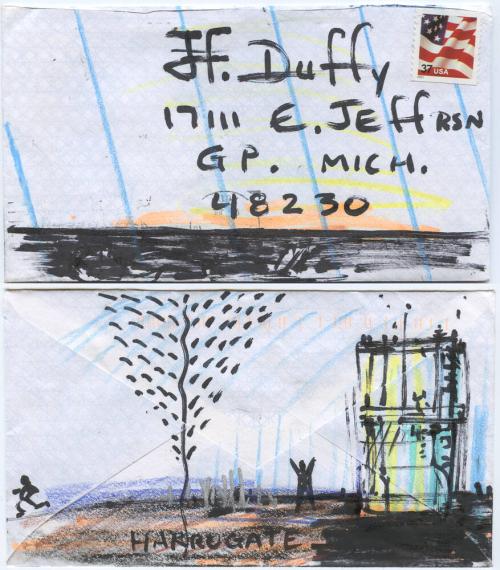 JF. Duffy
37 USA
17111 E. JEffRSN
GP. MICH.
48230
HARROGATE